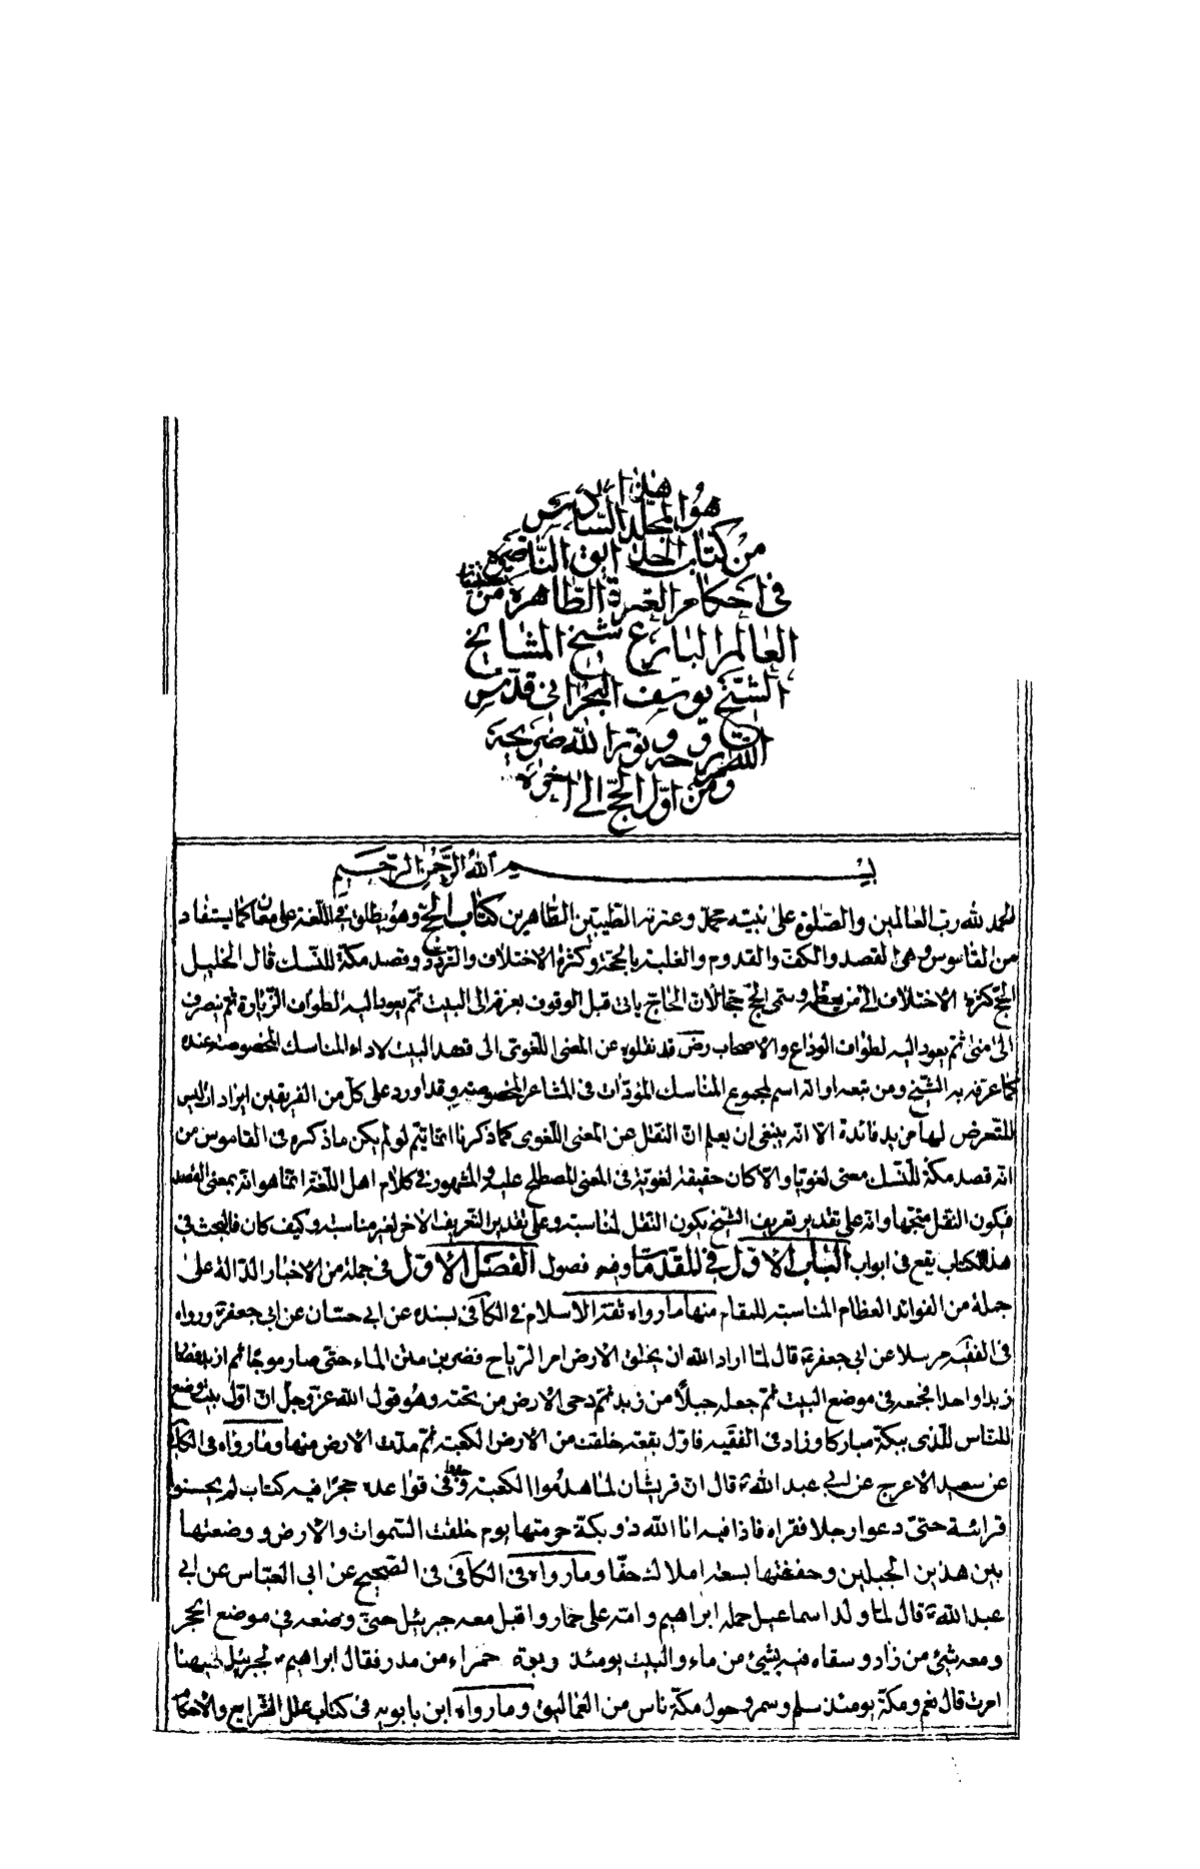 هذا
هو المجلد السادس
من كتاب الحدائق الناضرة
في احكام العترة الطاهرة من
العالم البارع شيخ المشايخ
الشيخ يوسف البحراني قدس
الله روحه ونور الله ضريحه
ومن اول الحج الى اخره
بسم الله الرحمن الرحيم
الحمد لله رب العالمين والصلوة على نبيه محمد وعترته الطيبين الطاهرين كتاب الحج وهو يطلق في اللغة على معان كما يستفاد
من القاموس وهي القصد والكف والقدوم والغلبة بالحجة وكثرة الاختلاف والتردد وقصد مكة للنسك قال الخليل
الحج كثرة الاختلاف الى من يعظمه وسمى الحج حجا لان الحاج ياتى قبل الوقوف بعرفة الى البيت ثم يعود اليه لطواف الزيارة ثم ينصرف
الى منى ثم يعود اليه لطواف الوداع والاصحاب رض قد نقلوه عن المعنى اللغوى الى قصد البيت لاداء المناسك المخصوصة عنده
كما عرفه به الشيخ ومن تبعه او انه اسم لمجموع المناسك المؤداة فى المشاعر المخصوصة وقد اورد على كل من الفريقين ايراد ات ليس
للتعرض لها من يد فائدة الا انه ينبغى ان يعلم ان النقل عن المعنى اللغوى كما ذكرنا انما يتم لو لم يكن ما ذكره فى القاموس من
انه قصد مكة للنسك معنى لغويا والا كان حقيقة لغوية فى المعنى المصطلح عليه والمشهور في كلام اهل اللغة انما هو انه بمعنى القصد
فيكون النقل متجها وانه على تقدير تعريف الشيخ يكون النقل لمناسبة وعلى تقدير التعريف الاخر لغير مناسبة وكيف كان فالبحث فى
هذا الكتاب يقع فى ابواب الباب الاول في المقدمات وفيه فصول الفصل الاول فى جملة من الاخبار الدالة على
جملة من الفوائد العظام المناسبة للمقام منها ما رواه ثقة الاسلام في الكافى بسنده عن ابى حسان عن ابى جعفر ع ورواه
فى الفقيه مرسلا عن ابى جعفر ع قال لما اراد الله ان يخلق الارض امر الرياح فضربن متن الماء حتى صار موجا ثم ازبد فصار
زبدا واحدا فجمعه فى موضع البيت ثم جعله جبلا من زبد ثم دحى الارض من تحته وهو قول الله عز وجل ان اول بيت وضع
للناس للذى ببكة مباركا وزاد فى الفقيه فاول بقعة خلقت من الارض الكعبة ثم مدت الارض منها وما رواه فى الكافى
عن سعيد الاعرج عن ابى عبد الله ع قال ان قريشا لما هدموا الكعبة وجدوا فى قواعده حجرا فيه كتاب لم يحسنوا
قرائته حتى دعوا رجلا فقراه فاذا فيه انا الله ذو بكة حرمتها يوم خلقت السموات والارض ووضعتها
بين هذين الجبلين وحففتها بسبعة املاك حفا وما رواه فى الكافى فى الصحيح عن ابى العباس عن ابى
عبد الله ع قال لما ولد اسماعيل حمله ابراهيم وامه على حمار واقبل معه جبرئيل حتى وضعه فى موضع الحجر
ومعه شئ من زاد وسقاء فيه شئ من ماء والبيت يومئذ ربوة حمراء من مدر فقال ابراهيم ع لجبرئيل ع ههنا
امرت قال نعم ومكة يومئذ سلم وسمر وحول مكة ناس من العماليق وما رواه ابن بابويه فى كتاب علل الشرايع والاحكام